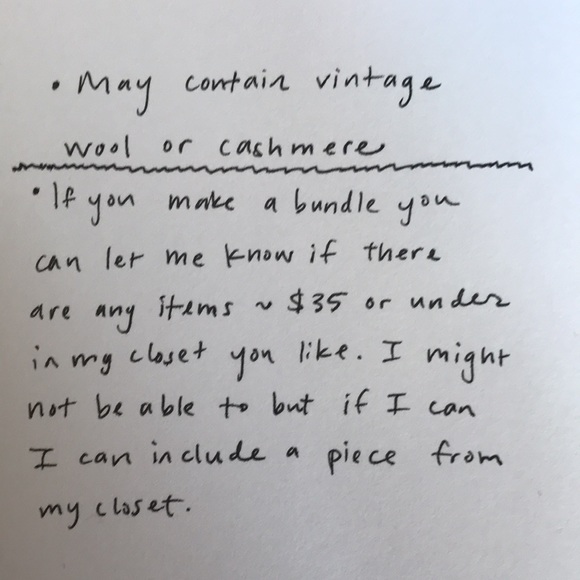 • May contain vintage
wool or cashmere
• If you make a bundle you
can let me know if there
are any items ~ $35 or under
in my closet you like. I might
not be able to but if I can
I can include a piece from
my closet.